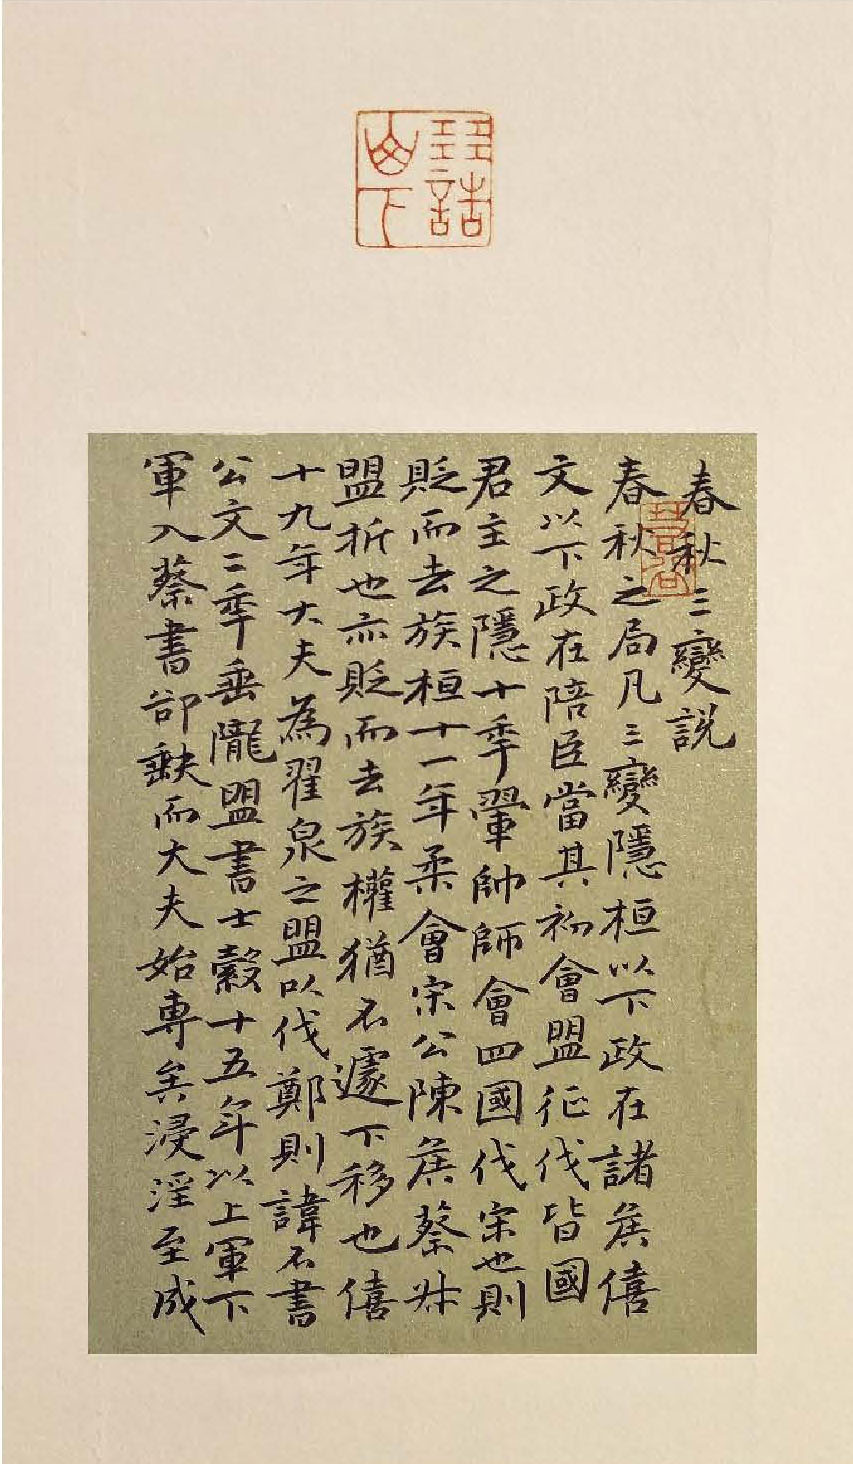 春秋三變説
春秋之局凡三變隱桓以下政在諸矦僖
文以下政在陪臣當其初會盟征伐皆國
君主之隱十季翬帥師會四國伐宋也則
貶而去族桓十一年柔會宋公陳矦蔡叔
盟折也亦貶而去族權猶不遽下移也僖
十九年大夫為翟泉之盟以伐鄭則諱不書
公文二季垂隴盟書士縠十五年以上軍下
軍入蔡書郤缺而大夫始專矣浸淫至成